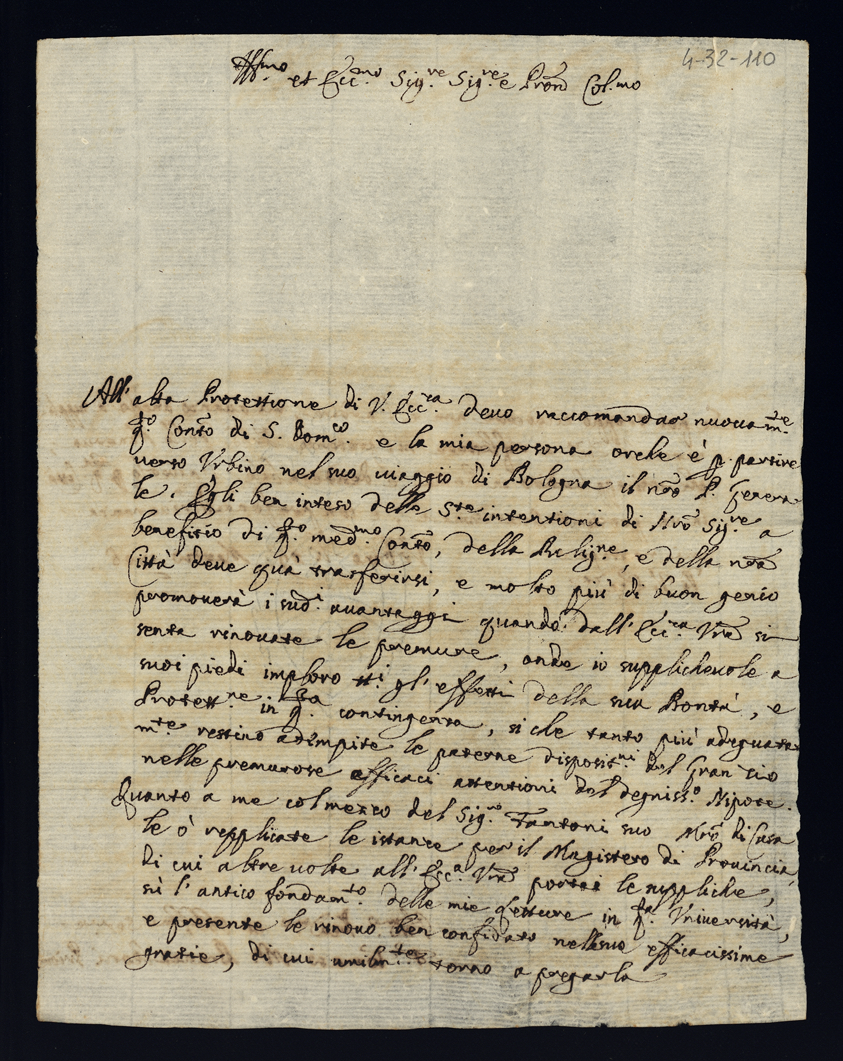 4-32-110
Ill.mo et Ecc.mo Sig.re Sig.re e Pron Col.mo
All'alta Protettione di V. Ecc.za devo raccomandar nuovam.te
q.o Conto di S. Dom.co e la mia persona orche è p. partire
verso Urbino nel suo viaggio di Bologna il nro P. Genera
le. Egli ben inteso delle S.te intentioni di Nro Sig.re a
benefitio di q.o med.mo Conto, della Relig.ne, e della nra
Città deve quà trasferirsi, e molto più di buon genio
promoverà i sud.i avantaggi quando dall'Ecc.za Vra si
senta rinovate le premure, onde io supplichevole a
suoi piedi imploro gl'effetti della sua Bontà, e
Protett.ne in q.a contingenza, si che tanto più adeguata
m.te restino adempite le paterne disposit.ni del Gran Zio
nelle premurose efficaci attentioni del degniss.o Nipote.
Quanto a me col mezzo del Sig.re Fantoni suo Mro di Casa
le ò repplicate le istanze per il Magistero di Provincia
di cui altre volte all'Ecc.a Vra portai le suppliche,
sù l'antico fondam.to delle mie Letture in q.a Università,
e presente le rinovo ben confidato nelle sue efficacissime
gratie, di cui umilm.te torno a pregarla